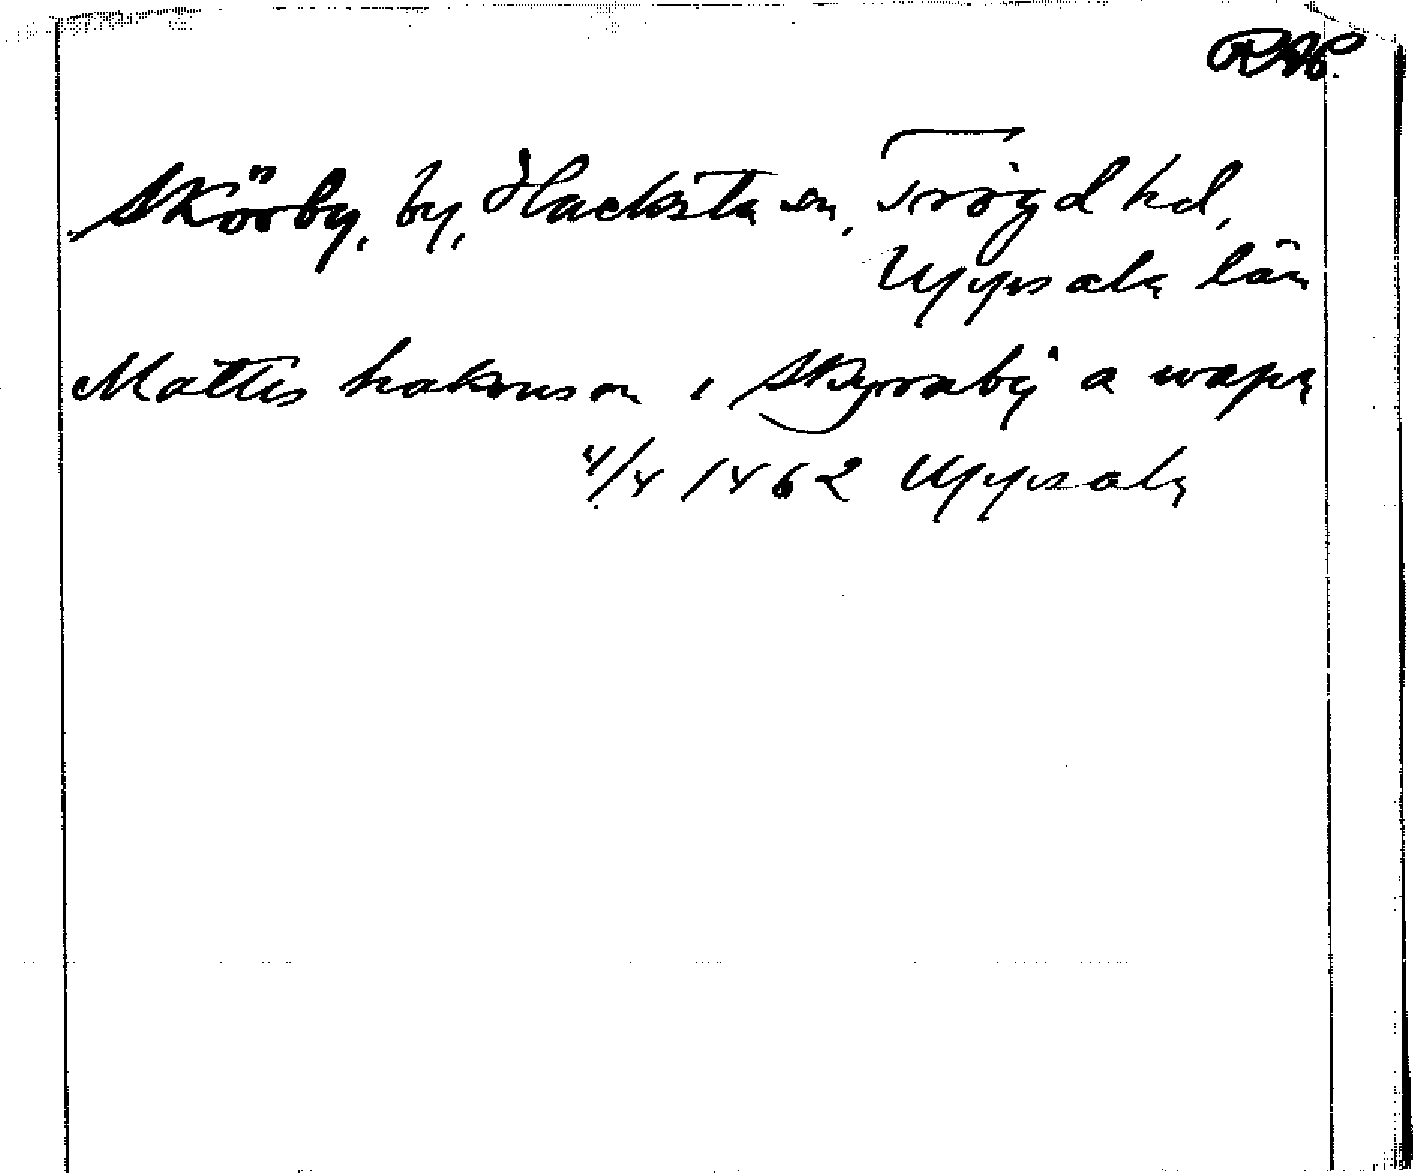 Skörby, by, Hacksta sn, Trögd hd,
Uppsala län
Mattis hakonson i Skyrraby a wapn
4/4 1462 Uppsala